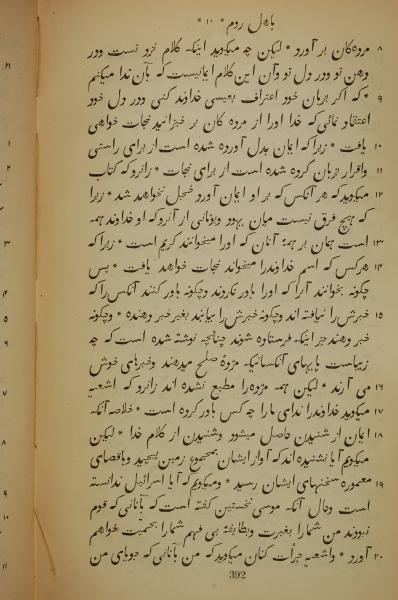 باهل روم * ۱۰ *
۸ مردەکان بر آورد * لیکن چه میکوید اینکه کلام نزد تست ودر
دهن تو ودر دل تو وآن این کلام ایمانیست که بآن ندا میکنیم
۹ * که اکر بزبان خود اعتراف بعیسی خداوند کنی ودر دل خود
اعتقاد نمائی که خدا اورا از مرده کان بر خیزانید نجات خواهی
۱۰ یافت * زیرا که ایمان بدل آورده شده است از برای راستی
۱۱ واقرار بزبان کرده شده است از برای نجات * زانرو که کتاب
۱۲ میکوید که هر آنکس که بر او ایمان آورد خجل نخواهد شد * زیرا
که هیچ فرق نیست میان یهود ویونانی از آنرو که او خداوند همه
۱۳ است همان بر همهٔ آنان که اورا میخوانند کریم است * زیرا که
۱۴ هرکس که اسم خداوندرا میخواند نجات خواهد یافت * پس
چکونه بخوانند آنرا که اورا باور نکردند وچکونه باور کنند آنکس را که
۱۵ خبرش را نیافته اند وچکونه خبرش را بیابند بغیر خبر دهنده * وچکونه
خبر دهند جز اینکه فرستاده شوند چنانچه نوشته شده است که چه
زیباست پایهای آنکسانیکه مژدهٔ صلح میدهند وخبرهای خوش
۱۶ می آرند * لیکن همه مژده‌را مطیع نشده اند زانرو که اشعیه
۱۷ میکوید خداوندا ندای مارا چه کس باور کرده است * خلاصه آنکه
۱۸ ایمان از شنیدن حاصل میشود وشنیدن از کلام خدا * لیکن
میکویم آیا نشنیده اند که آواز ایشان بمجموع زمین پیچید وباقصای
۱۹ معموره سخنهای ایشان رسید * ومیکویم که آیا اسرائیل ندانسته
است وحال آنکه موسی نخستین کفته است که بآنانی که قوم
نبودند من شمارا بغیرت وبطایفهٔ بی فهم شمارا بحمیت خواهم
۲۰ آورد * واشعیه جرأت کنان میکوید که من بآنانی که جویای من
392